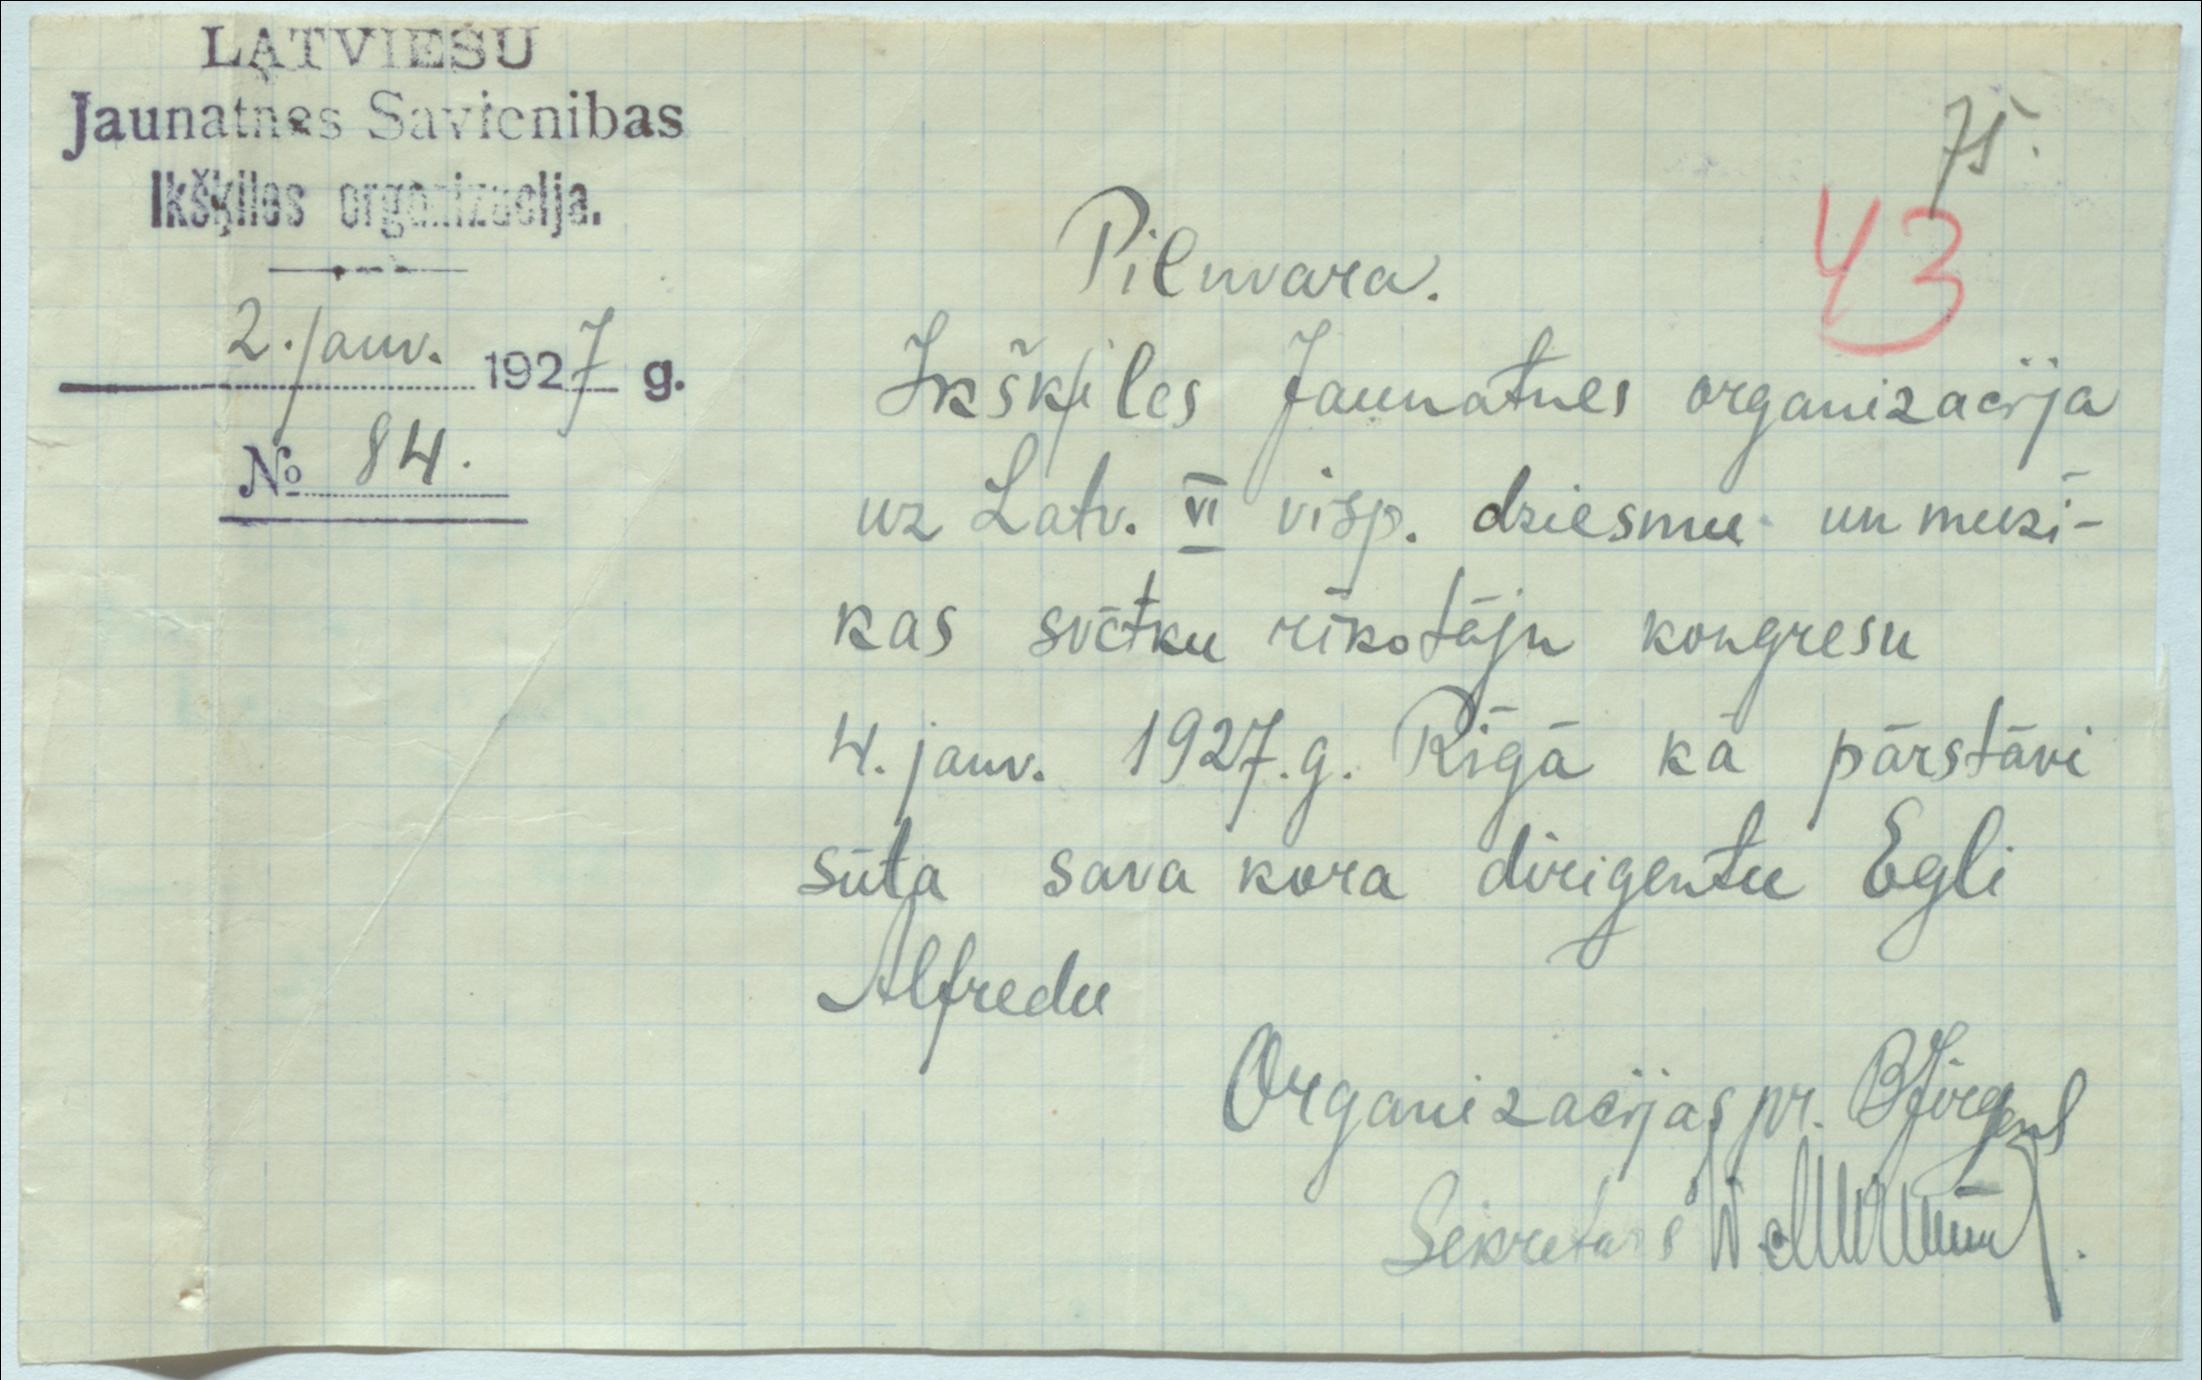 LATVIEŠU
Jaunatnes Savienibas
Ikšķiles organizacija.
2. janv. 1927 g.
№ 84.
75.
43
Pilnvara.
Ikšķiles Jaunatnes organizacija
uz Latv. VI visp. dziesmu un muzi-
kas svētku rīkotāju kongresu
4. janv. 1927. g. Rīgā kā pārstāvi
sūta sava kora dirigentu Egli
Alfredu
Organizacijas pr. BJirgens
Sekretars